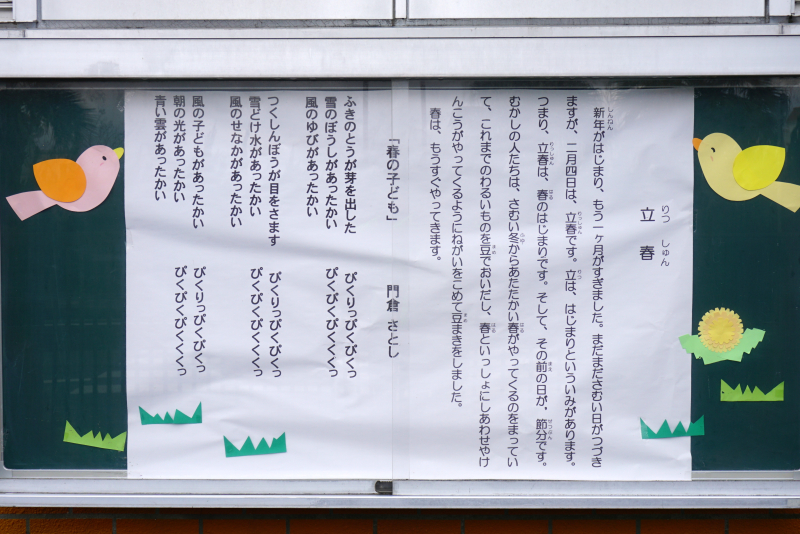 立春
りっしゅん
新年がはじまり、もう一ヶ月がすぎました。まだまださむい日がつづき
しんねん
ますが、二月四日は、立春です。立は、はじまりといういみがあります。
りっしゅん
りつ
つまり、立春は、春のはじまりです。そして、その前の日が、節分です。
りっしゅん
はる
まえ
せつぶん
むかしの人たちは、さむい冬からあたたかい春がやってくるのをまってい
ふゆ
はる
て、これまでのわるいものを豆でおいだし、春といっしょにしあわせやけ
まめ
はる
んこうがやってくるようにねがいをこめて豆まきをしました。
まめ
春は、もうすぐやってきます。
「春の子ども」 門倉 さとし
ふきのとうが芽を出した ぴくりっぴくぴくっ
雪のぼうしがあったかい ぴくぴくぴくくくっ
風のゆびがあったかい
つくしんぼうが目をさます ぴくりっぴくぴくっ
雪どけ水があったかい ぴくぴくぴくくくっ
風のせなかがあったかい
風の子どもがあったかい ぴくりっぴくぴくっ
朝の光があったかい ぴくぴくぴくくくっ
青い雲があったかい